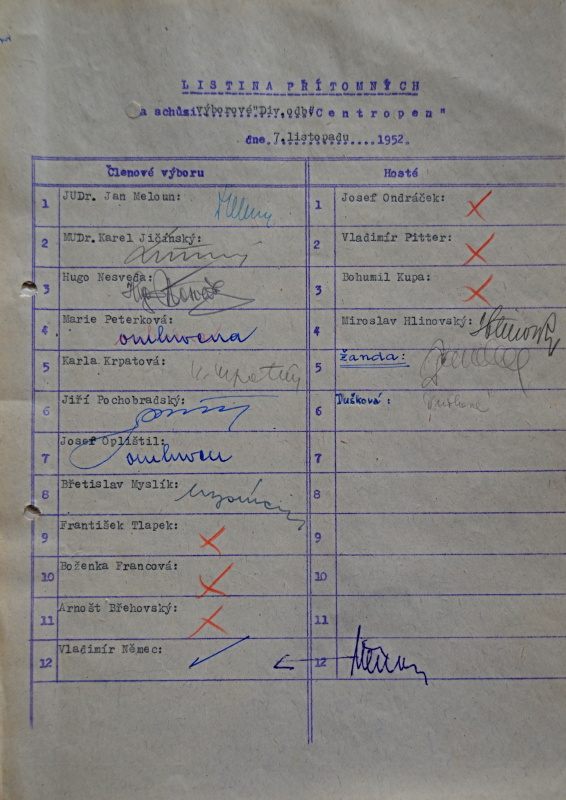 LISTINA PŘÍTOMNÝCH
na schůzi výborové "Div.odb" "Centropen"
dne 7.listopadu 1952.
Členové výboru
Hosté
1 JUDr. Jan Meloun:
2 MUDr. Karel Jičínský:
3 Hugo Nesveda:
4 Marie Peterková: omluvena
5 Karla Krpatová:
6 Jiří Pochobradský:
7 Josef Oplištil: omluven
8 Břetislav Myslík:
9 František Tlapek:
10 Boženka Francová:
11 Arnošt Břehovský:
12 Vladimír Němec:
1 Josef Ondráček:
2 Vladimír Pitter:
3 Bohumil Kupa:
4 Miroslav Hlinovský:
5 žanda:
6 Tušková:
7
8
9
10
11
12